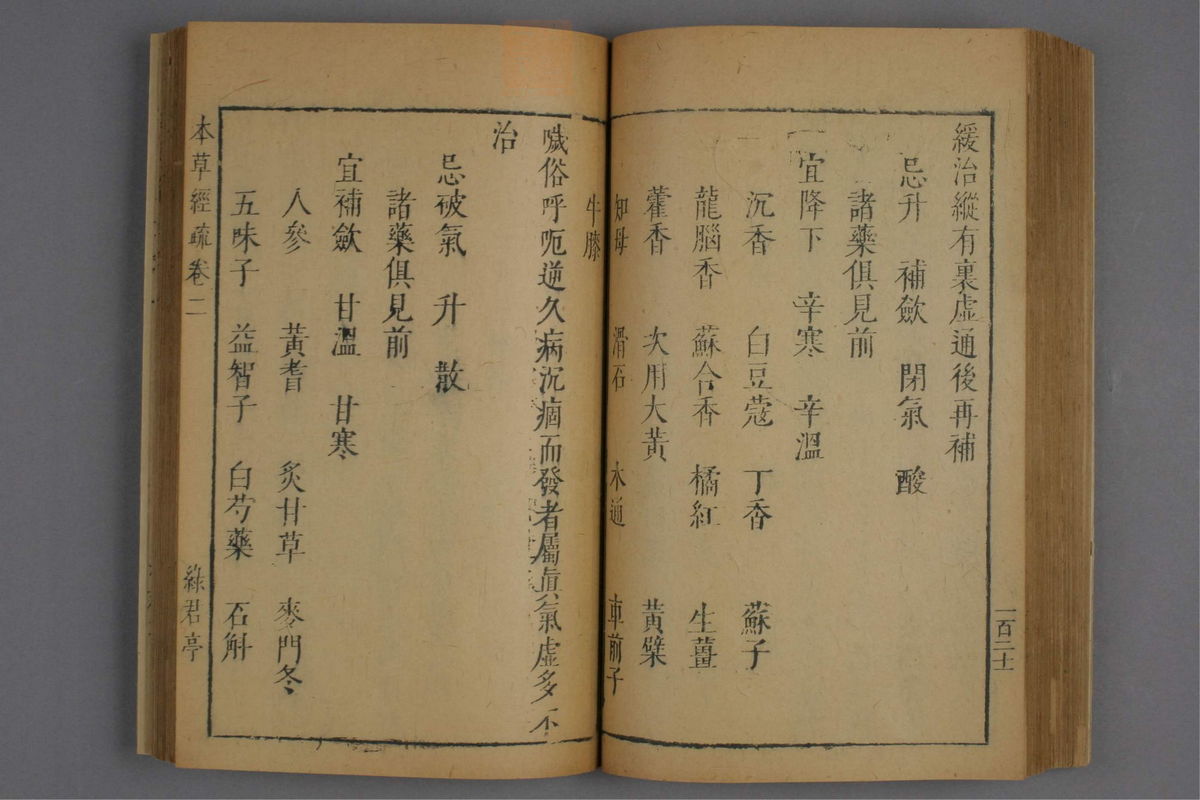 緩治縱有裏虛通後再補
忌升　補斂　閉氣　酸
諸藥俱見前
宜降下　辛寒　辛溫
沉香　白豆蔻　丁香　蘇子
龍腦香　蘇合香　橘紅　生薑
藿香　次用大黃　黃檗
知母　滑石　木通　車前子
牛膝
噦俗呼呃逆久病沉痼而發者屬眞氣虛多不
治
忌破氣　升　散
諸藥俱見前
宜補斂　甘溫　甘寒
人參　黃耆　炙甘草　麥門冬
五味子　益智子　白芍藥　石斛
本草經疏卷二　綠君亭
一百二十